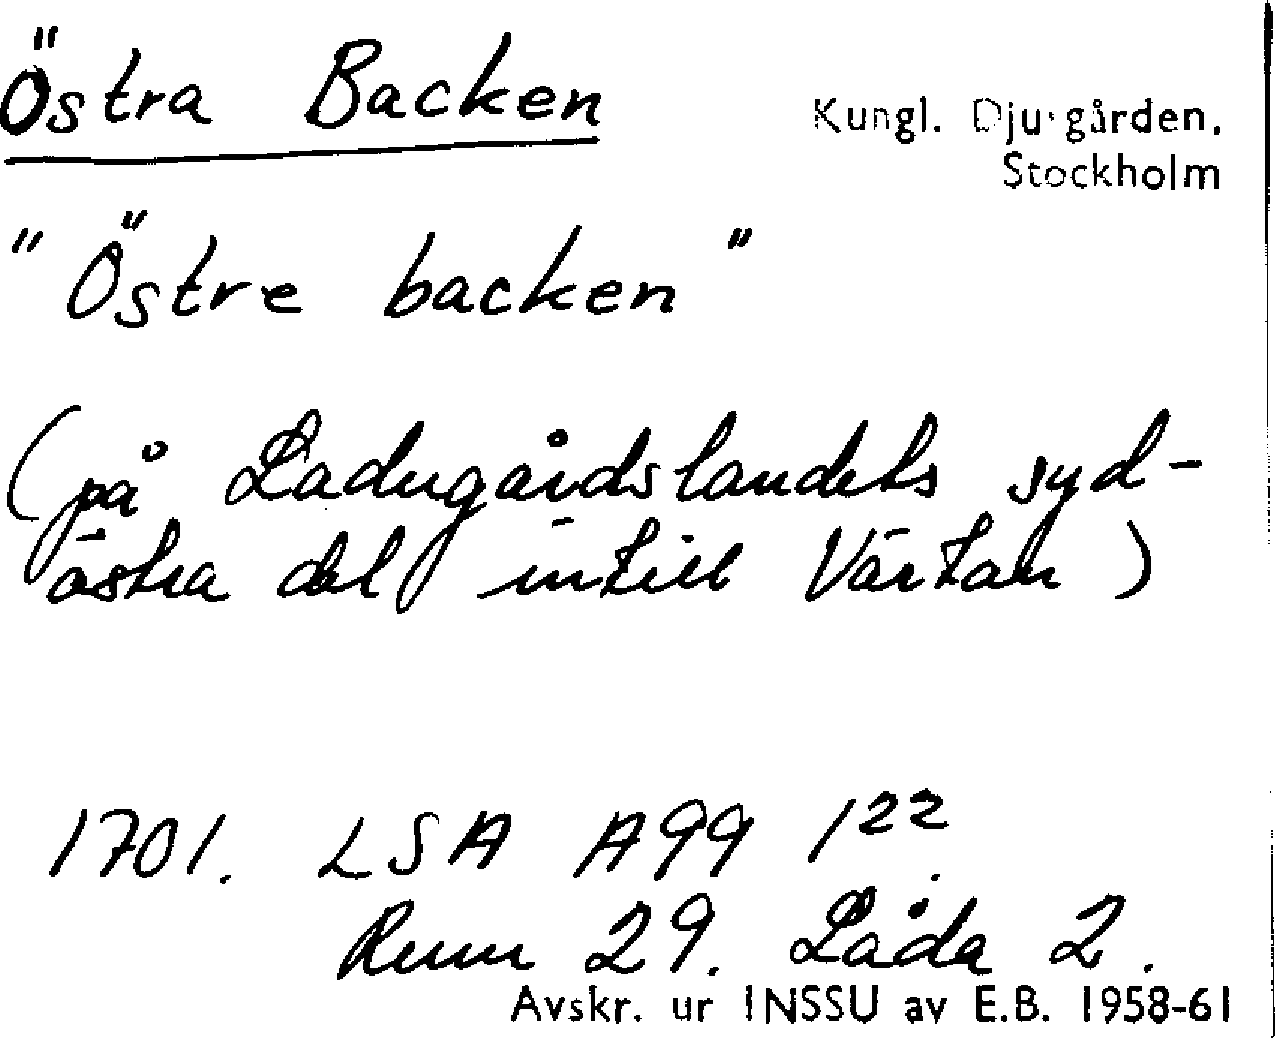 Östra Backen
Kungl. Djurgården,
Stockholm
"Östre backen"
(på Ladugårdslandets syd-
östra del intill Värtan)
1701. LSA A99 1²²
Rum 29. Låda 2.
Avskr. ur INSSU av E.B. 1958-61